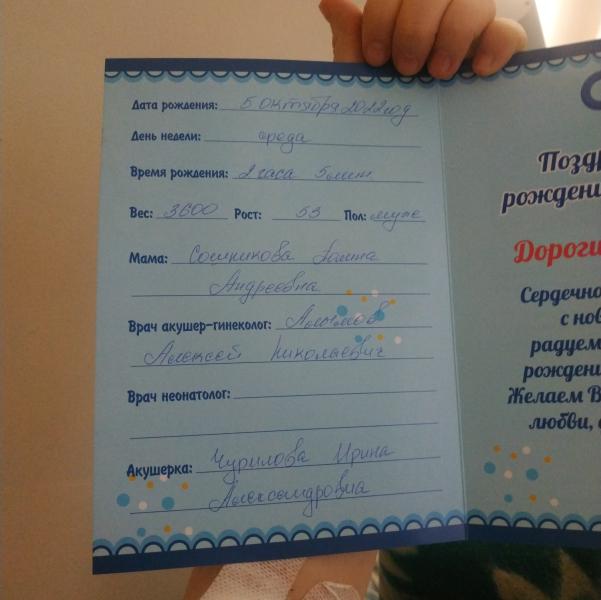 Дата рождения: 5 октября 2022 год
День недели: среда
Время рождения: 2 часа 5 мин
Вес: 3600 Рост: 53 Пол: муж
Мама: Сошникова Галина
Андреевна
Врач акушер-гинеколог:
Алексей Николаевич
Врач неонатолог:
Акушерка: Чурилова Ирина
Александровна
Поздр
рождени
Дороги
Сердечно
с нов
радуем
рождени
Желаем В
любви,